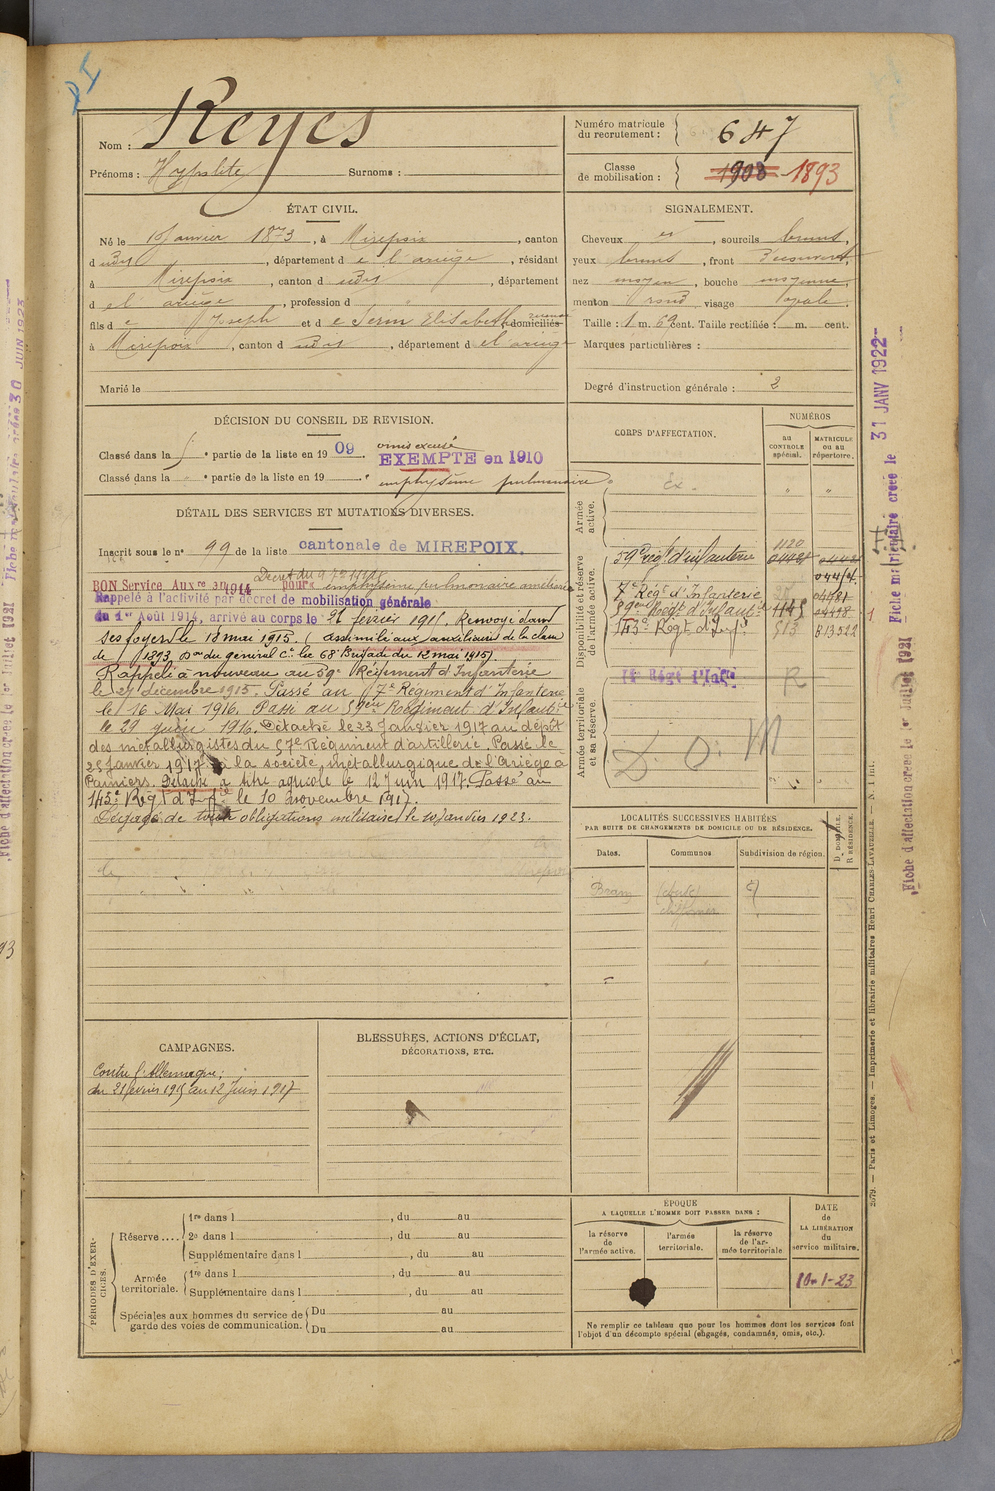 Nom : Reyes
Prénoms : Hypolite Surnoms :
Numéro matricule du recrutement : 647
Classe de mobilisation : 1908 1893
ÉTAT CIVIL.
Né le Janvier 18 3, à Mirepoix, canton
d udit, département de l'ariège, résidant
à Mirepoix, canton d udit, département
d el ariège, profession d
fils de Joseph et de Serin Elisabeth, domiciliés
à Mirepoix, canton d udit, département d el ariège
Marié le
SIGNALEMENT.
Cheveux et, sourcils bruns,
yeux bruns, front découvert,
nez moyen, bouche moyenne,
menton rond visage ovale.
Taille : 1 m. 69 cent. Taille rectifiée : m. cent.
Marques particulières :
Degré d'instruction générale : 2
DÉCISION DU CONSEIL DE REVISION.
Classé dans la e partie de la liste en 1909. omis excusé
EXEMPTE en 1910
Classé dans la e partie de la liste en 19 emphysème pulmonaire
DÉTAIL DES SERVICES ET MUTATIONS DIVERSES.
Inscrit sous le no 99 de la liste cantonale de MIREPOIX.
Décret du 9 7bre 1914
BON Service Auxre en 1914 pour emphysème pulmonaire
Rappelé à l'activité par décret de mobilisation générale
du 1er Août 1914, arrivé au corps le 21 février 1915. Renvoyé dans
ses foyers le 18 mai 1915. (assimilé aux auxiliaires de la classe
de 1893 Don du général Ct la 68e Brigade du 12 mai 1915).
Rappelé à nouveau au 59e Régiment d'Infanterie
le 27 décembre 1915. Passé au 7e Régiment d'Infanterie
le 16 Mai 1916. Passé au 59ème Régiment d'Infante
le 29 1916. Détaché le 23 Janvier 1917 au dépôt
des métallurgistes du 57e Régiment d'artillerie. Passé le
25 Janvier 1917 à la société métallurgique de l'Ariège à
Pamiers. Détaché à titre agricole le 12 Juin 1917. Passé au
143e Régt d'Infie le 10 novembre 1917.
Dégagé de toutes obligations militaires le 10 janvier 1923.
CORPS D'AFFECTATION.
NUMÉROS
au CONTROLE spécial.
MATRICULE ou au répertoire.
Armée active.
Ex
Disponibilité et réserve de l'armée active.
59e régt d'infanterie 1120
044/4.
7e Régt d'Infanterie
59ème Régt d'Infantie 1145
143e Régt d'Infie 513 B13522
Armée territoriale et sa réserve.
R
D. O. M
LOCALITÉS SUCCESSIVES HABITÉES
PAR SUITE DE CHANGEMENTS DE DOMICILE OU DE RÉSIDENCE.
Dates. Communes Subdivision de région. D. DOMICILE. R RÉSIDENCE.
Bram
CAMPAGNES.
Contre l'Allemagne :
du 21 février 1915 au 12 Juin 1917
BLESSURES, ACTIONS D'ÉCLAT,
DÉCORATIONS, ETC.
PÉRIODES D'EXERCICES.
Réserve ....
1re dans l , du au
2e dans l , du au
Supplémentaire dans l , du au
Armée territoriale.
1re dans l , du au
Supplémentaire dans l , du au
Spéciales aux hommes du service de garde des voies de communication.
Du au
Du au
ÉPOQUE
A LAQUELLE L'HOMME DOIT PASSER DANS :
la réserve de l'armée active.
l'armée territoriale.
la réserve de l'armée territoriale
DATE de LA LIBÉRATION du service militaire.
10-1-23
Ne remplir ce tableau que pour les hommes dont les services font
l'objet d'un décompte spécial (engagés, condamnés, omis, etc.).
2679. — Paris et Limoges. — Imprimerie et librairie militaires Henri CHARLES-LAVAUZELLE. — N. 1 Int.
Fiche matriculaire créée le 31 JANV 1922
Fiche d'affectation créée le 1er Juillet 1921
Fiche d'affectation créée le 1er Juillet 1921
30 JUIN 1923